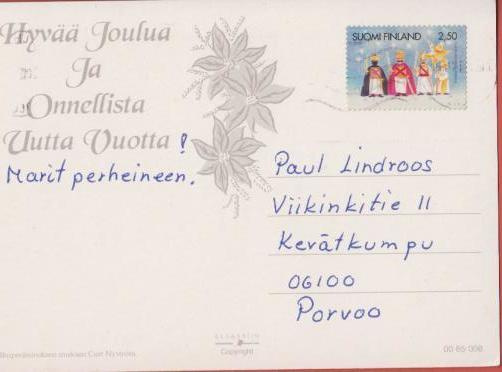 Hyvää Joulua
Ja
Onnellista
Uutta Vuotta!
Marit perheineen.
SUOMI FINLAND 2,50
Paul Lindroos
Viikinkitie 11
Kevätkumpu
06100
Porvoo
Copyright
00 65 008